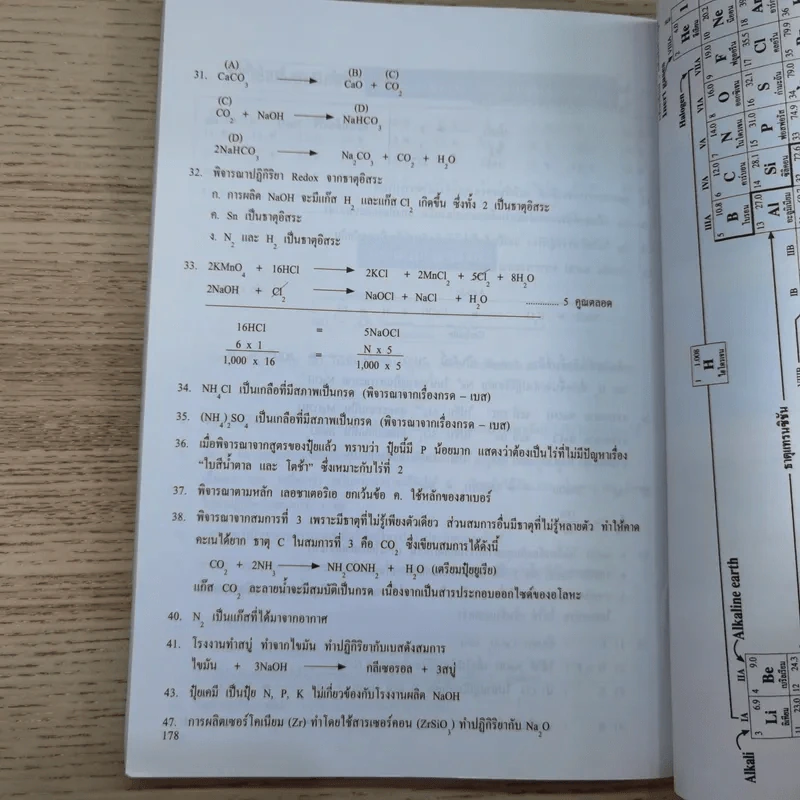 (A) (B) (C)
31. CaCO₃ ⟶ CaO + CO₂
(C) (D)
CO₂ + NaOH ⟶ NaHCO₃
(D)
2NaHCO₃ ⟶ Na₂CO₃ + CO₂ + H₂O
32. พิจารณาปฏิกิริยา Redox จากธาตุอิสระ
ก. การผลิต NaOH จะมีแก๊ส H₂ และแก๊ส Cl₂ เกิดขึ้น ซึ่งทั้ง 2 เป็นธาตุอิสระ
ค. Sn เป็นธาตุอิสระ
ง. N₂ และ H₂ เป็นธาตุอิสระ
33. 2KMnO₄ + 16HCl ⟶ 2KCl + 2MnCl₂ + 5Cl₂ + 8H₂O
2NaOH + Cl₂ ⟶ NaOCl + NaCl + H₂O ............ 5 คูณตลอด
16HCl = 5NaOCl
6 x 1 / 1,000 x 16 = N x 5 / 1,000 x 5
34. NH₄Cl เป็นเกลือที่มีสภาพเป็นกรด (พิจารณาจากเรื่องกรด – เบส)
35. (NH₄)₂SO₄ เป็นเกลือที่มีสภาพเป็นกรด (พิจารณาจากเรื่องกรด – เบส)
36. เมื่อพิจารณาจากสูตรของปุ๋ยแล้ว ทราบว่า ปุ๋ยนี้มี P น้อยมาก แสดงว่าต้องเป็นไร่ที่ไม่มีปัญหาเรื่อง
“ใบสีน้ำตาล และ โตช้า” ซึ่งเหมาะกับไร่ที่ 2
37. พิจารณาตามหลัก เลอชาเตอริเอ ยกเว้นข้อ ค. ใช้หลักของฮาเบอร์
38. พิจารณาจากสมการที่ 3 เพราะมีธาตุที่ไม่รู้เพียงตัวเดียว ส่วนสมการอื่นมีธาตุที่ไม่รู้หลายตัว ทำให้คาด
คะเนได้ยาก ธาตุ C ในสมการที่ 3 คือ CO₂ ซึ่งเขียนสมการได้ดังนี้
CO₂ + 2NH₃ ⟶ NH₂CONH₂ + H₂O (เตรียมปุ๋ยยูเรีย)
แก๊ส CO₂ ละลายน้ำจะมีสมบัติเป็นกรด เนื่องจากเป็นสารประกอบออกไซด์ของอโลหะ
40. N₂ เป็นแก๊สที่ได้มาจากอากาศ
41. โรงงานทำสบู่ ทำจากไขมัน ทำปฏิกิริยากับเบสดังสมการ
ไขมัน + 3NaOH ⟶ กลีเซอรอล + 3สบู่
43. ปุ๋ยเคมี เป็นปุ๋ย N, P, K ไม่เกี่ยวข้องกับโรงงานผลิต NaOH
47. การผลิตเซอร์โคเนียม (Zr) ทำโดยใช้สารเซอร์คอน (ZrSiO₃) ทำปฏิกิริยากับ Na₂O
178
Inert gases
Halogen
VIIA
VIA
VA
IVA
IIIA
IIB
IB
He
4.0
Ne
10 20.2
F
19.0 9
O
16.0 8
N
14.0 7
C
12.0 6
B
5 10.8
Cl
17 35.5
S
16 32.1
P
15 31.0
Si
14 28.1
Al
13 27.0
1 1.008
H
ไฮโดรเจน
ธาตุแทรนซิชัน
Alkaline earth
IIA
Be
4 9.0
IA
Li
3 6.9
ลิเทียม
11 23.0
12 24.3
Alkali